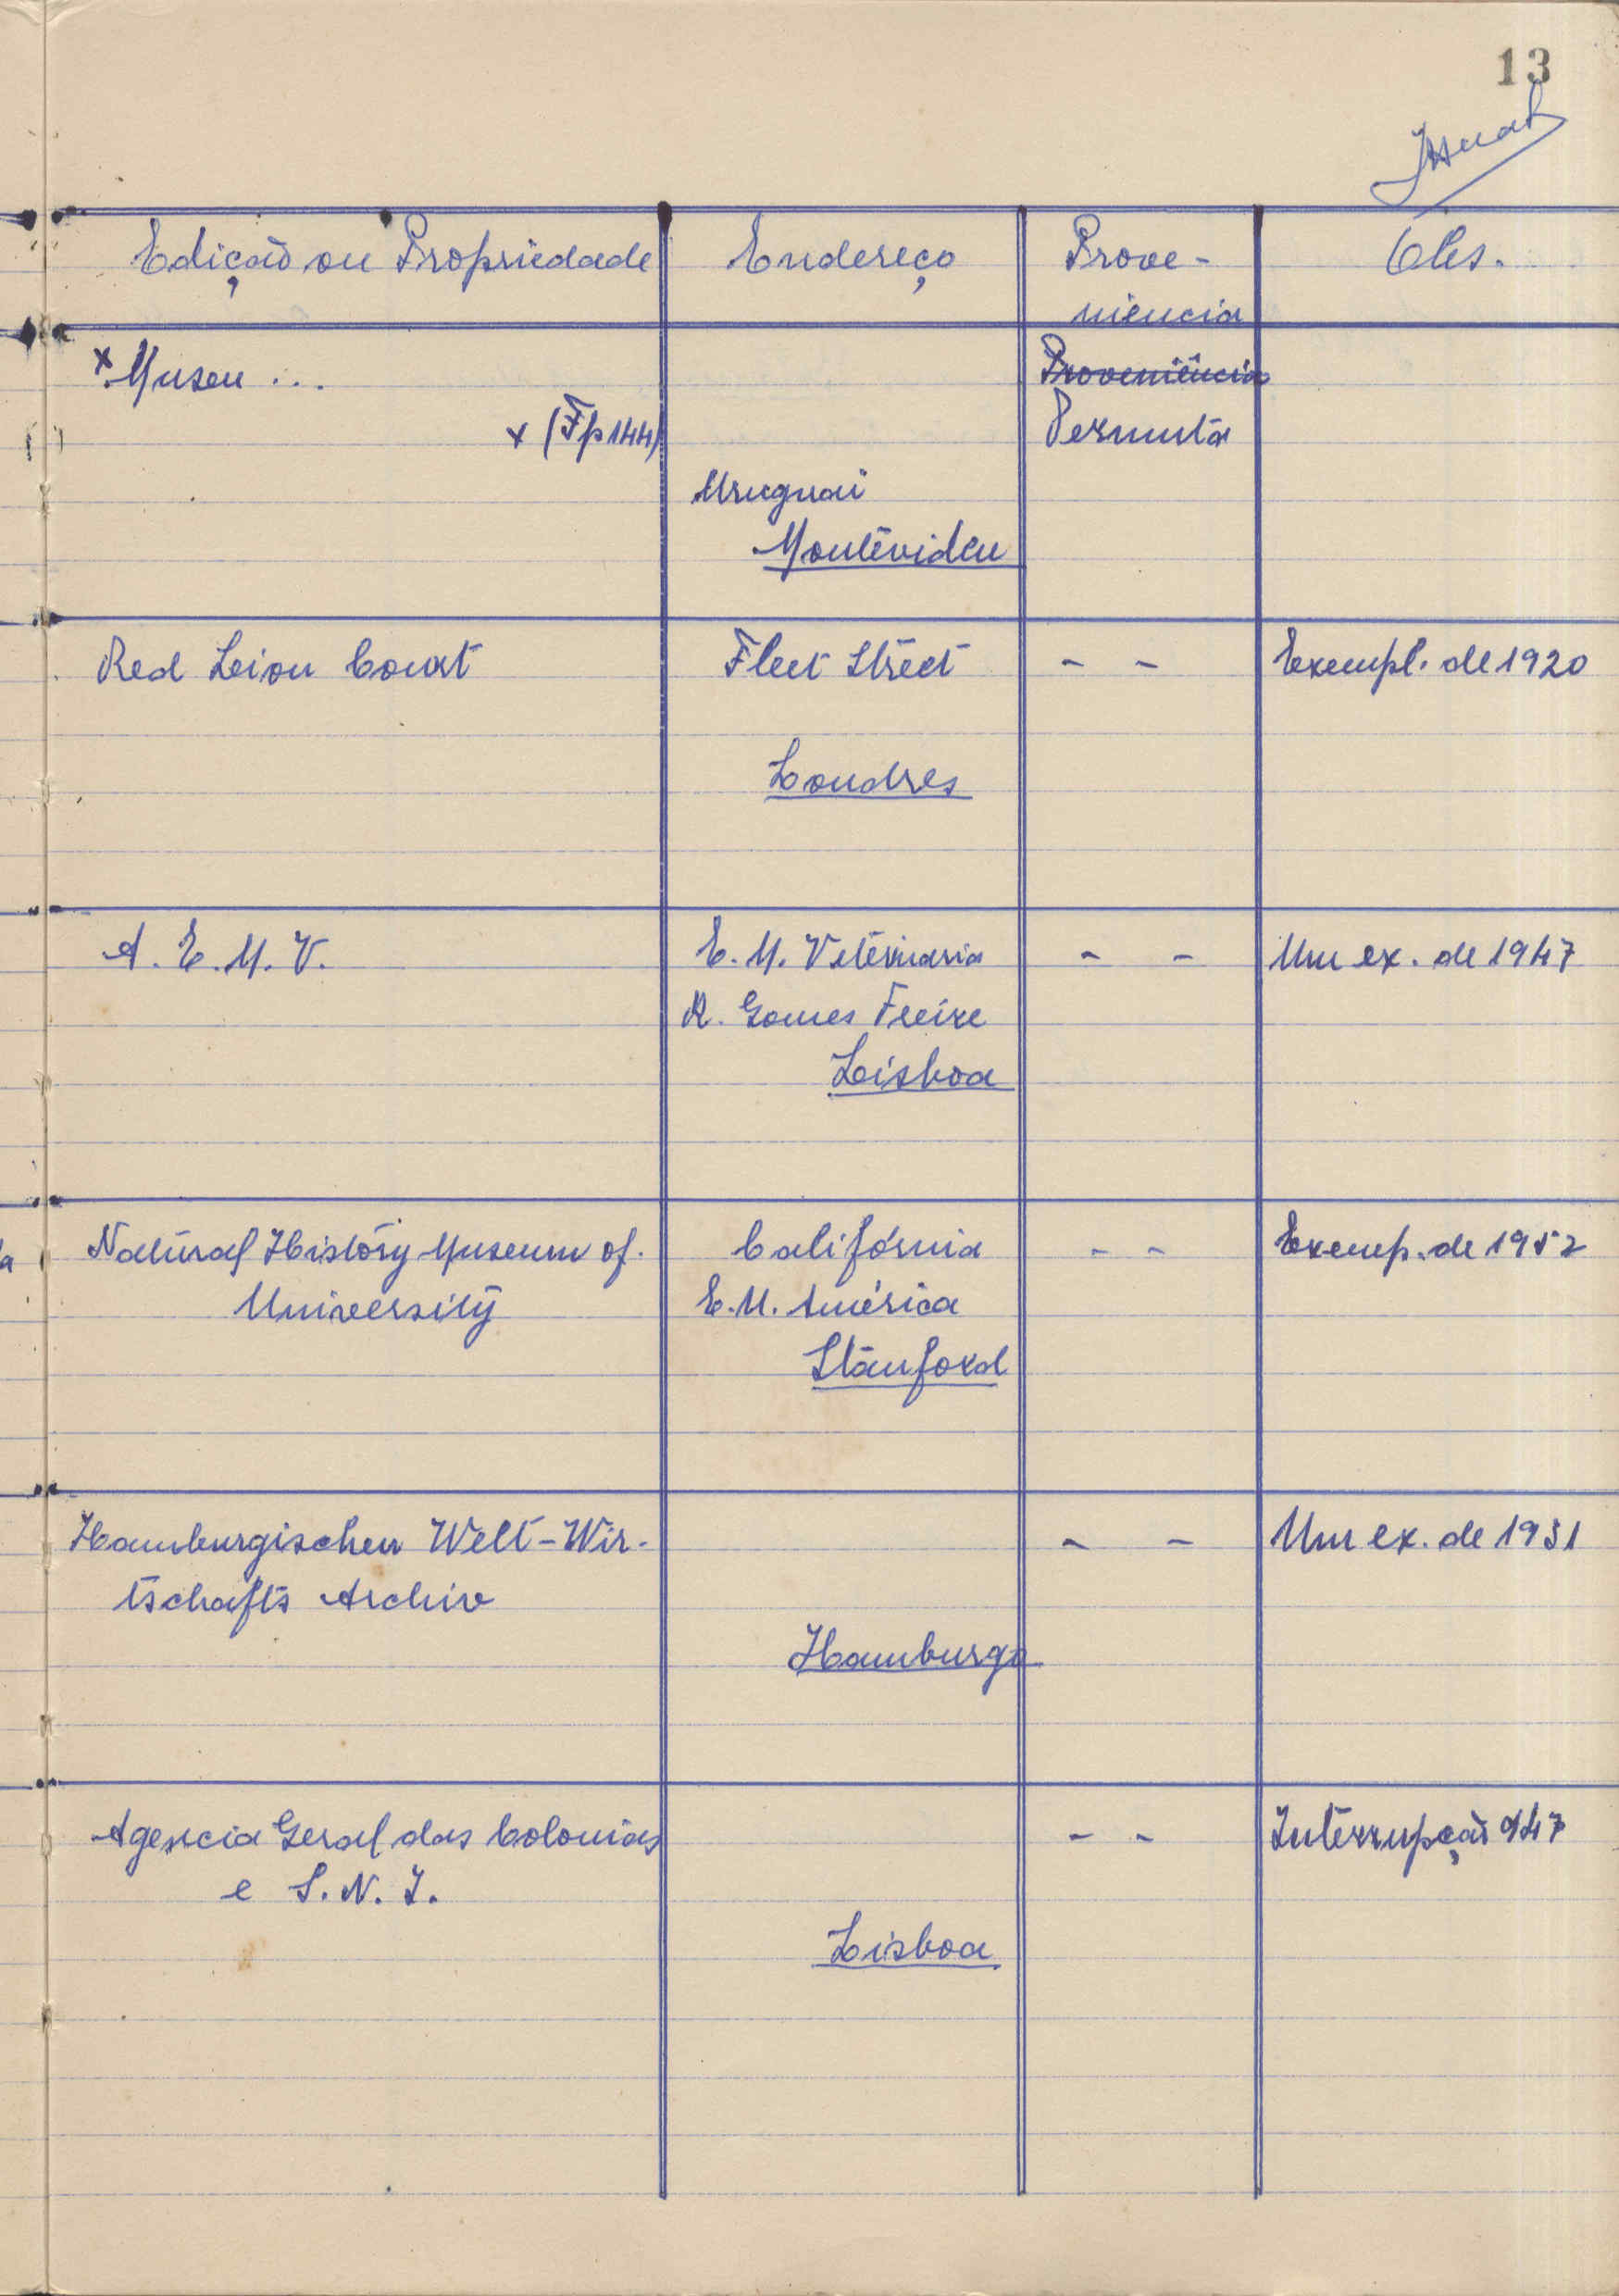 13
Edição ou Propriedade Endereço Prove- Obs.
niencia
x Museu ... Proveniência
x (Fp 144) Permuta
Uruguai
Montevideu
Red Leion Court Fleet Street - - Exempl. de 1920
Londres
A. E. M. V. E. M. Veterinaria - - Um ex. de 1947
R. Gomes Freire
Lisboa
Natural History Museum of. Califórnia - - Exemp. de 1952
University E. U. América
Stanford
Hamburgischen Welt-Wir- - - Um ex. de 1931
tschafts Archiv
Hamburgo
Agencia Geral das Colonias - - Interrupção 947
e S. N. I.
Lisboa